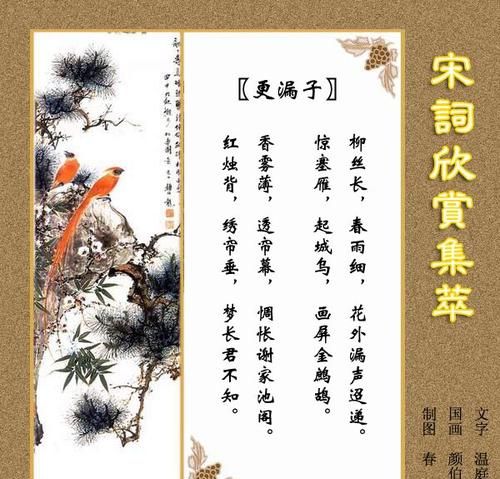 宋詞欣賞集萃
〖更漏子〗
柳丝长，春雨细，花外漏声迢递。
惊塞雁，起城乌，画屏金鹧鸪。
香雾薄，透帘幕，惆怅谢家池阁。
红烛背，绣帘垂，梦长君不知。
文字 温庭
国画 颜伯
制图 春